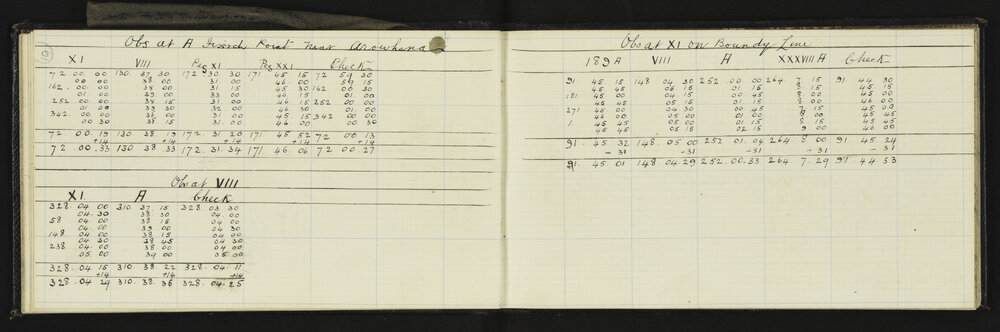 19
Obs at A Fixed Point near Arowhana
XI VIII Peg XI Peg XXI Check
72 00 00 130 37 30 172 30 30 171 45 15 72 59 30
00 00 38 00 31 00 46 00 59 15
162 00 00 38 00 31 15 45 30 162 00 30
01 00 39 00 33 00 46 15 01 00
252 00 00 38 15 31 00 46 15 252 00 00
01 00 39 30 32 00 46 30 01 00
342 00 00 38 00 31 00 45 15 342 00 00
00 30 38 15 31 00 46 00 00 30
72 00 19 130 38 19 172 31 20 171 45 52 72 00 13
+14 +14 +14 +14
72 00 33 130 38 33 172 31 34 171 46 06 72 00 27
Obs at VIII
XI A Check
328 04 00 310 37 15 328 03 30
04 30 38 30 04 00
58 04 00 38 15 04 00
04 00 39 00 04 30
148 04 00 38 15 04 00
04 30 38 45 04 30
238 04 00 38 00 04 00
05 00 39 00 05 30
328 04 15 310 38 22 328 04 11
+14 +14 +14
328 04 29 310 38 36 328 04 25
Obs at XI on Boundy Line
189 A VIII A XXXVIII A Check
91 45 15 148 04 30 252 00 00 264 7 15 91 44 30
45 45 05 15 01 15 8 15 45 45
181 45 00 04 15 00 45 8 00 45 00
45 45 05 15 01 15 8 00 46 00
271 45 00 04 30 00 45 7 15 45 00
46 00 05 00 01 00 8 00 45 45
1 45 15 05 00 01 15 8 15 45 15
45 45 05 15 02 15 9 00 46 00
91 45 32 148 05 00 252 01 04 264 8 00 91 45 24
-31 -31 -31 -31 -31
91 45 01 148 04 29 252 00 33 264 7 29 91 44 53